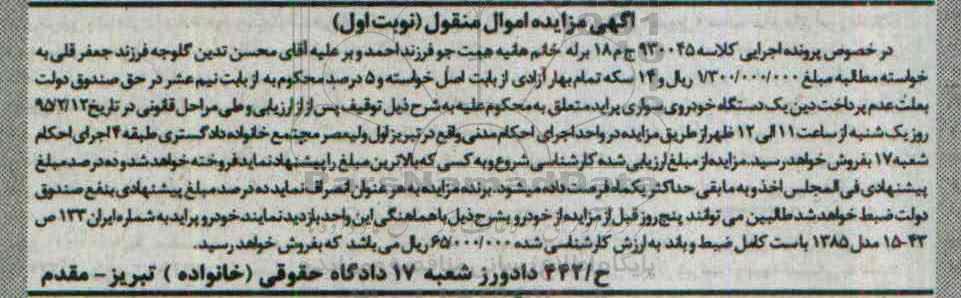 آگهی مزایده اموال منقول (نوبت اول)
در خصوص پرونده اجرایی کلاسه ۹۳۰۰۴۵ ج م ۱۸ برله خانم هانیه همت جو فرزند احمد و بر علیه آقای محسن تدین گلوجه فرزند جعفر قلی به
خواسته مطالبه مبلغ ۱/۳۰۰/۰۰۰/۰۰۰ ریال و ۱۴ سکه تمام بهار آزادی از بابت اصل خواسته و ۵ درصد محکوم به از بابت نیم عشر در حق صندوق دولت
بعلت عدم پرداخت دین یک دستگاه خودروی سواری پراید متعلق به محکوم علیه به شرح ذیل توقیف پس از ارزیابی و طی مراحل قانونی در تاریخ ۹۵/۲/۱۲
روز یک شنبه از ساعت ۱۱ الی ۱۲ ظهر از طریق مزایده در واحد اجرای احکام مدنی واقع در تبریز اول ولیعصر مجتمع خانواده دادگستری طبقه ۴ اجرای احکام
شعبه ۱۷ بفروش خواهد رسید. مزایده از مبلغ ارزیابی شده کارشناسی شروع و به کسی که بالاترین مبلغ را پیشنهاد نماید فروخته خواهد شد و ده درصد مبلغ
پیشنهادی فی المجلس اخذ و به مابقی حداکثر یکماه فرصت داده میشود. برنده مزایده به هر عنوان انصراف نماید ده درصد مبلغ پیشنهادی بنفع صندوق
دولت ضبط خواهد شد طالبین می توانند پنج روز قبل از مزایده از خودرو بشرح ذیل با هماهنگی این واحد بازدید نمایند خودرو پراید به شماره ایران ۱۳۳ ص
۴۳-۱۵ مدل ۱۳۸۵ با ست کامل ضبط و باند به ارزش کارشناسی شده ۶۵/۰۰۰/۰۰۰ ریال می باشد که بفروش خواهد رسید.
ح/۴۴۲ دادورز شعبه ۱۷ دادگاه حقوقی (خانواده) تبریز - مقدم